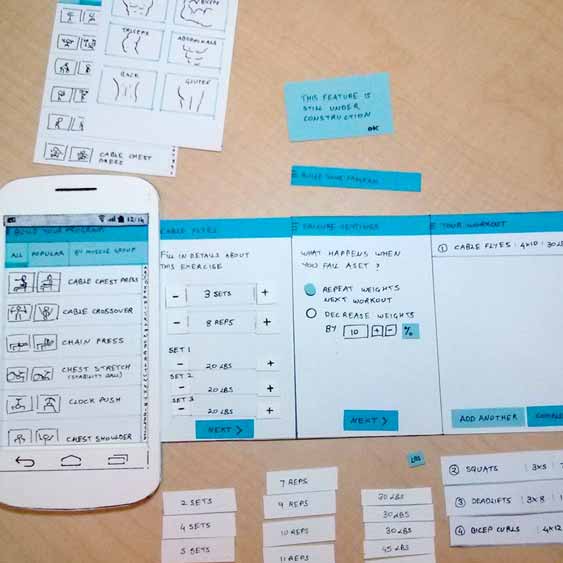 BICEPS
TRICEPS
ABDOMINALS
BACK
GLUTES
CABLE CHEST
PRESS
THIS FEATURE IS
STILL UNDER
CONSTRUCTION
OK
BUILD YOUR PROGRAM
12/14
BUILD YOUR PROGRAM
ALL
POPULAR
BY MUSCLE GROUP
CABLE CHEST PRESS
CABLE CROSSOVER
CHAIN PRESS
CHEST STRETCH
(STABILITY BALL)
CLOCK PUSH
CHEST SHOULDER
CABLE FLYES
FILL IN DETAILS ABOUT
THIS EXERCISE
- 3 SETS +
- 8 REPS +
SET 1
- 20 LBS +
SET 2
- 20 LBS +
SET 3
- 20 LBS +
NEXT >
FAILURE SETTINGS
WHAT HAPPENS WHEN
YOU FAIL A SET ?
REPEAT WEIGHTS
NEXT WORKOUT
DECREASE WEIGHTS
BY 10 + - %
NEXT >
YOUR WORKOUT
① CABLE FLYES : 4X10 : 30LB
ADD ANOTHER
LBS
2 SETS
4 SETS
5 SETS
7 REPS
9 REPS
10 REPS
11 REPS
30 LBS
30 LBS
30 LBS
45 LBS
② SQUATS | 3X5 |
③ DEADLIFTS | 3X8 |
④ BICEP CURLS | 4X12